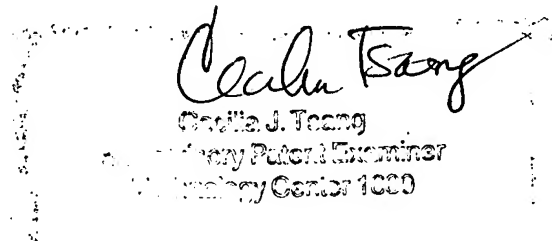 Cecilia Tsang
Cecilia J. Tsang
Patent Examiner
Technology Center 1600